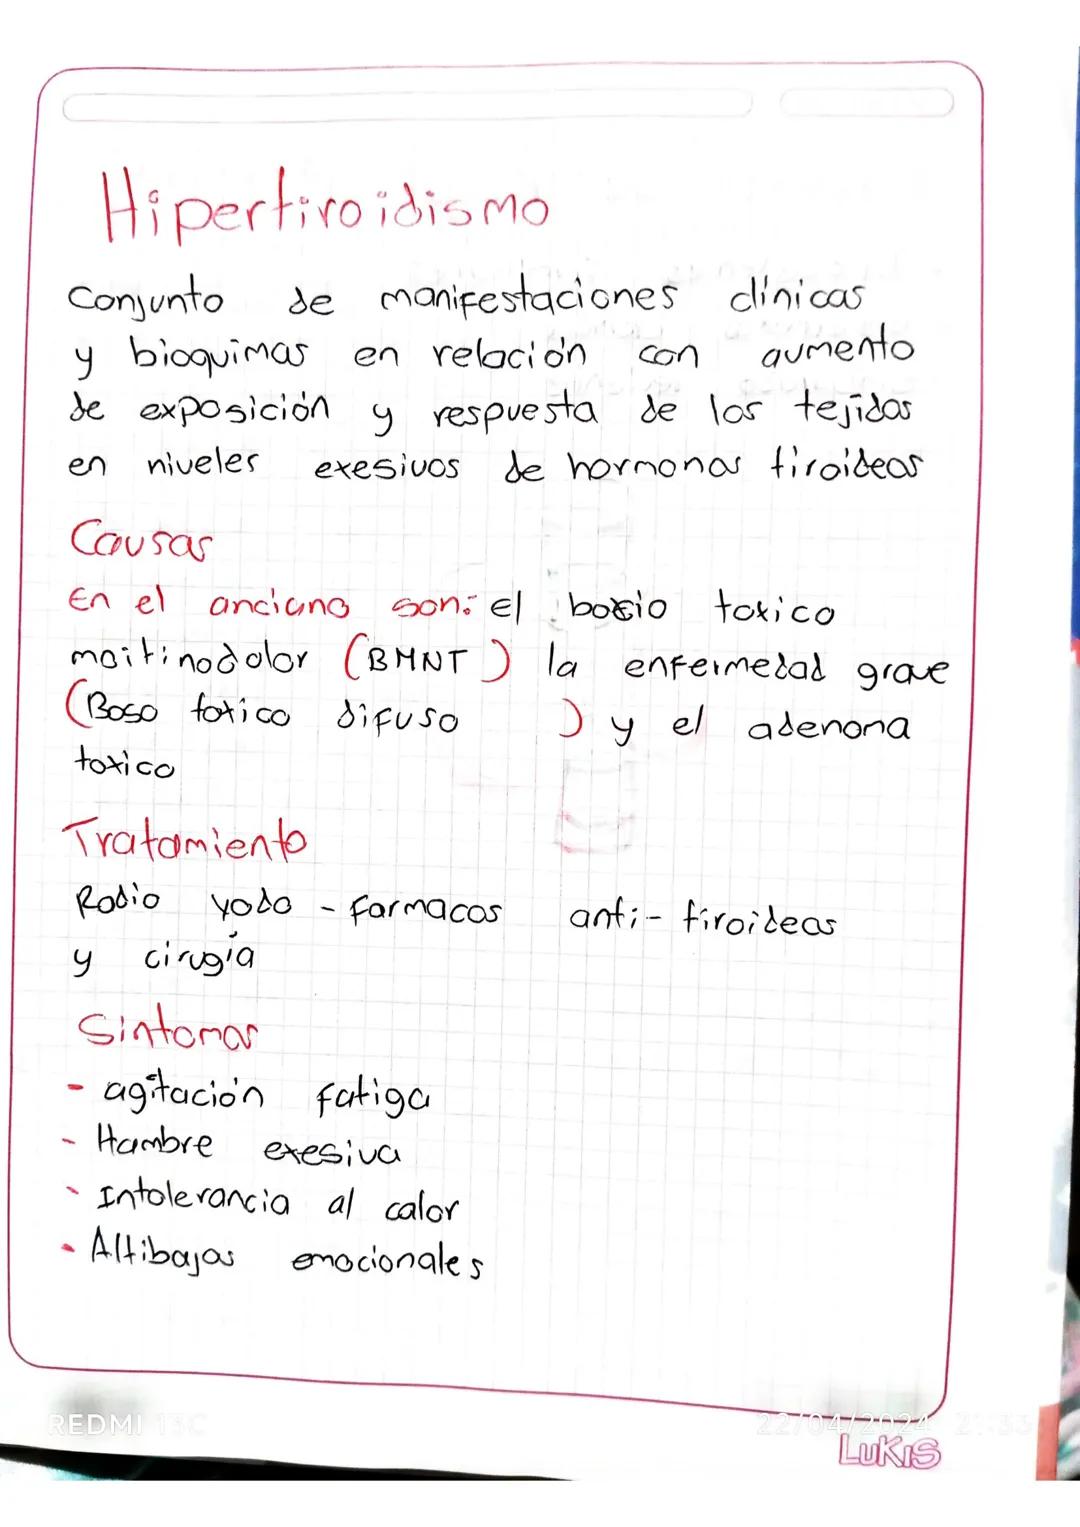 Hipertiroidismo
Conjunto de manifestaciones clínicas
y bioquimas en relación con aumento
de exposición y respuesta de los tejidos
en niveles exesivos de hormonas tiroideas
Causas
En el anciano son: el bocio toxico
moitinodolor (BMNT) la enfermedad grave
(Boso toxico difuso ) y el adenoma
toxico
Tratamiento
Radio yodo - farmacos anti- tiroideas
y cirugía
Sintomas
- agitación fatiga
- Hambre exesiva
- Intolerancia al calor
- Altibajos emocionales
REDMI 13C
22/04/2024 21:33
LUKIS